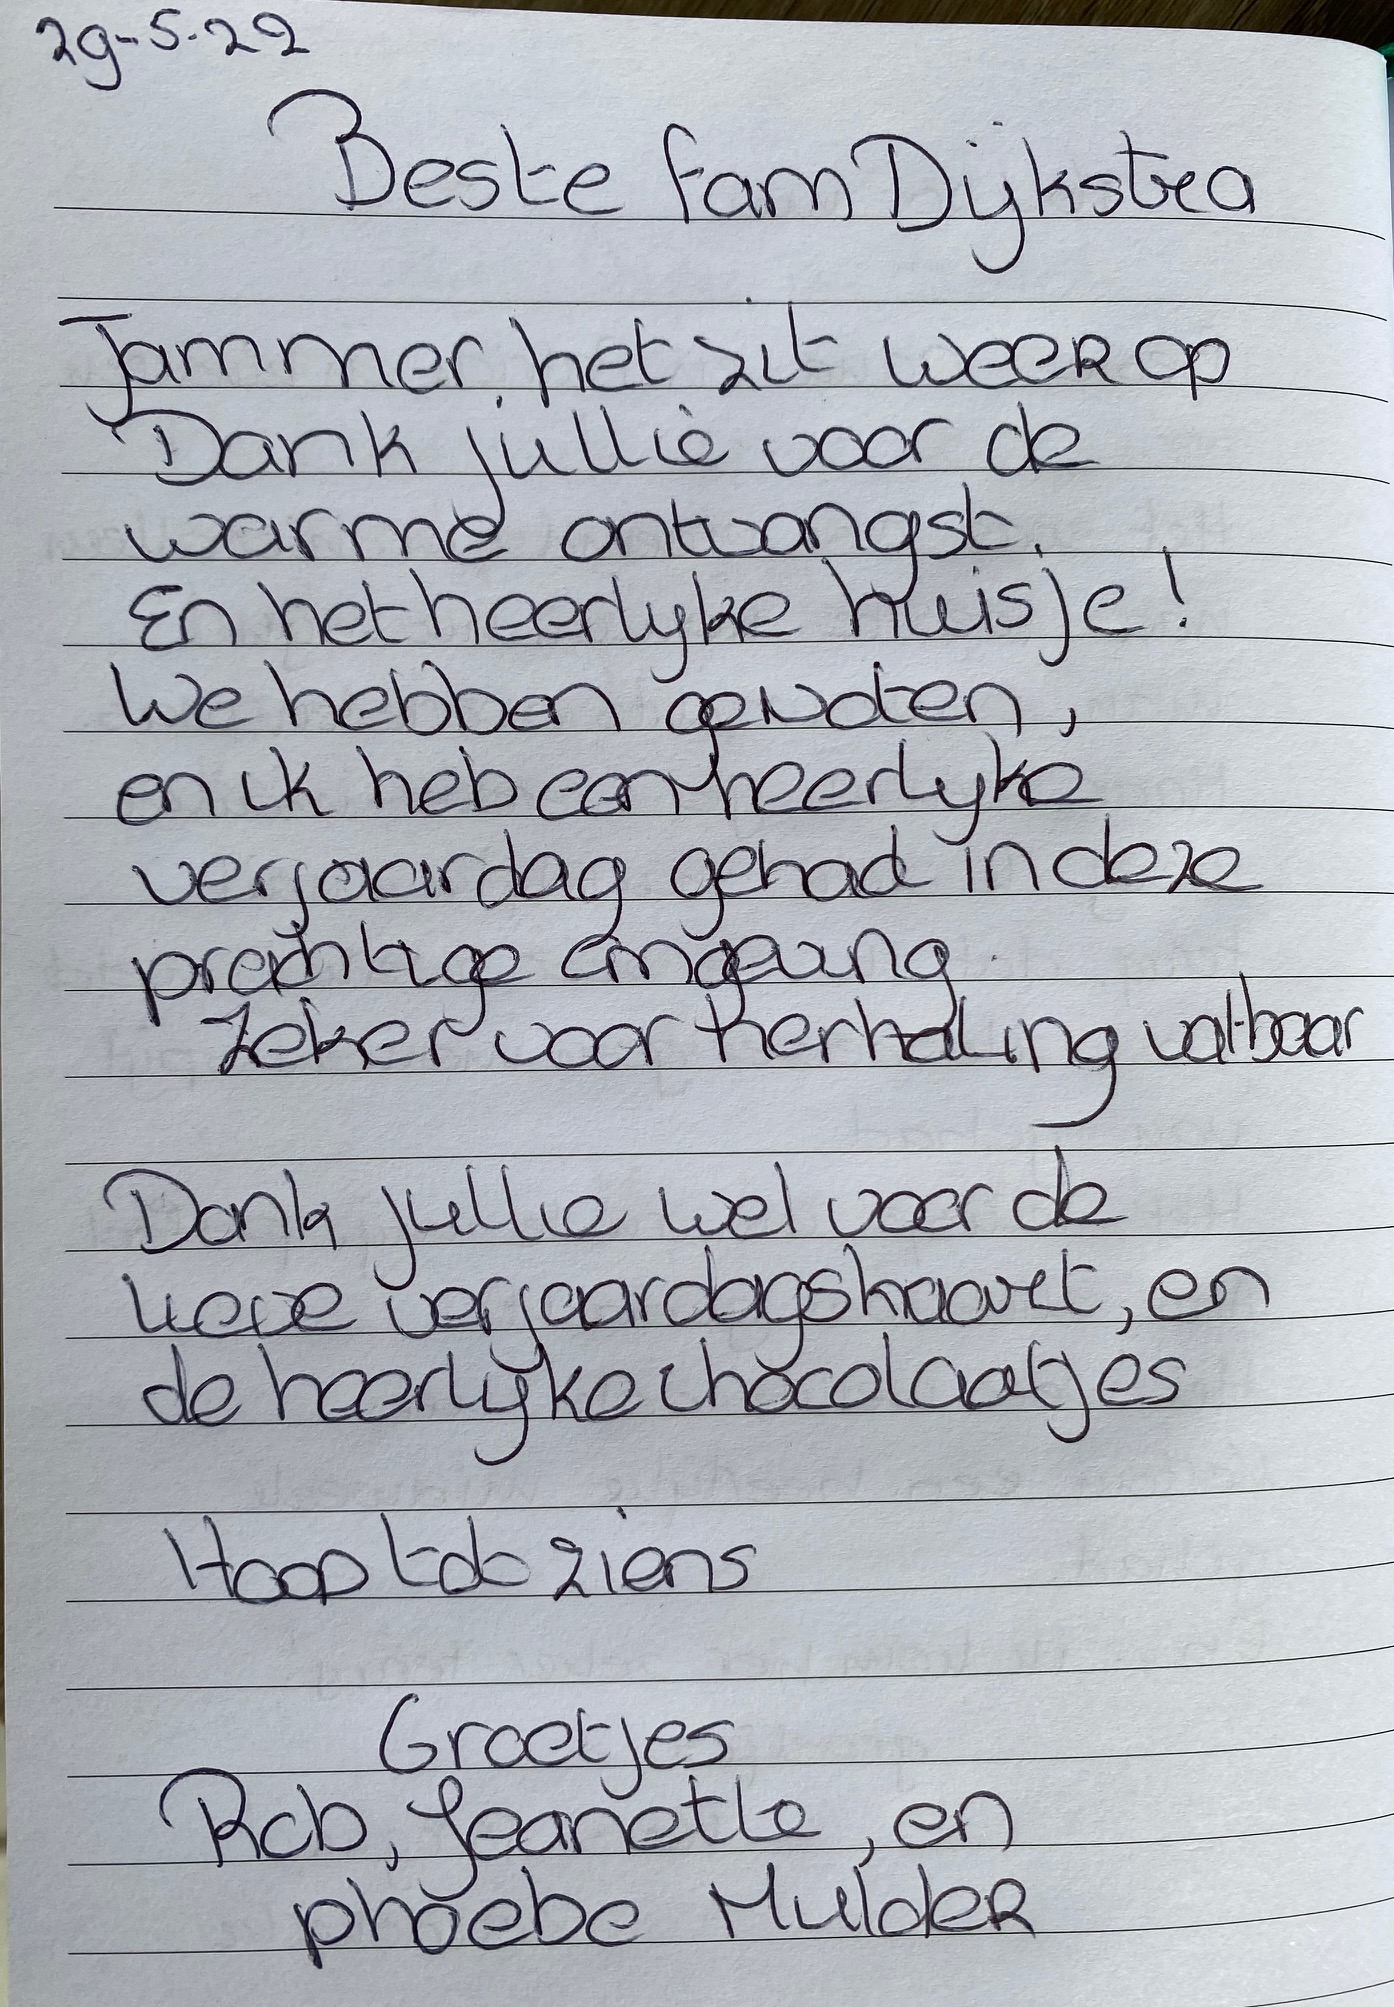 29-5-22
Beste fam Dijkstra
Jammer, het zit weer op
Dank jullie voor de
warme ontvangst.
En het heerlyke huisje!
We hebben genoten,
en ik heb een heerlyke
verjaardag gehad in deze
prachtige omgeving.
Zeker voor herhaling vatbaar
Dank jullie wel voor de
lieve verjaardagskaart, en
de heerlijke chocolaatjes
Hoop tot ziens
Groetjes
Rob, Jeanette, en
phoebe Mulder